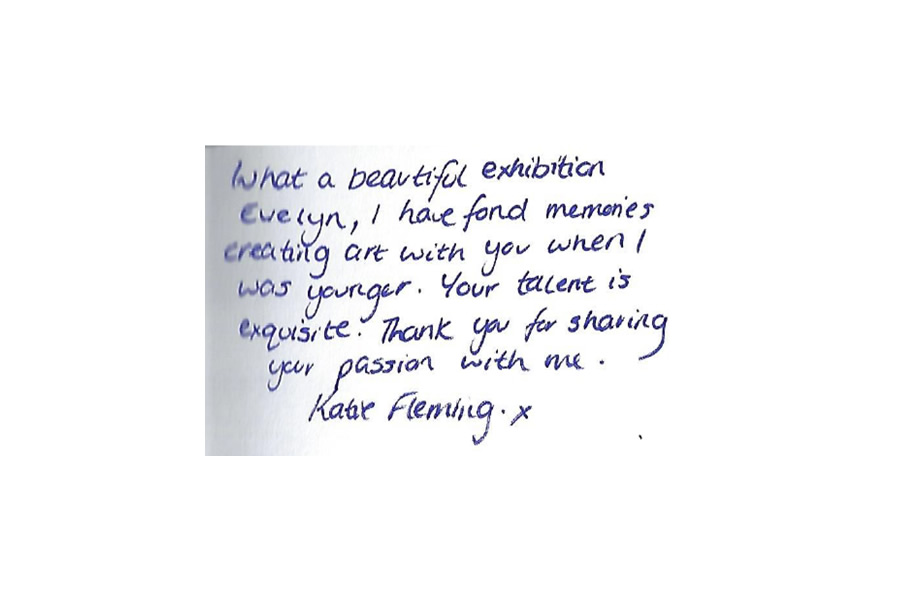 What a beautiful exhibition
Evelyn, I have fond memories
creating art with you when I
was younger. Your talent is
exquisite. Thank you for sharing
your passion with me.
Katie Fleming. x